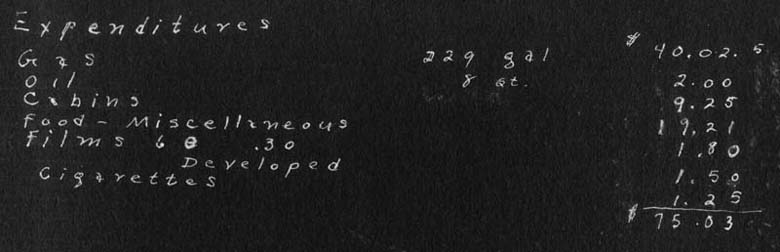 Expenditures
Gas 229 gal $ 40.02.5
Oil 8 qt. 2.00
Cabins 9.25
Food - Miscellaneous 19.21
Films 6 @ .30 1.80
Developed 1.50
Cigarettes 1.25
$ 75.03